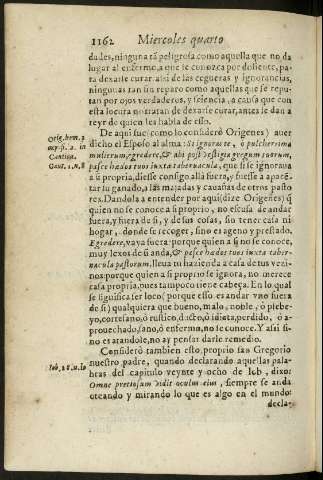 1162 Miercoles quarto
dades, ninguna tã peligrosa como aquella que no da
lugar al enfermo, a que se conozca por doliente, pa-
ra dexarse curar. assi de las cegueras y ignorancias,
ningunas tan sin reparo como aquellas que se repu-
tan por ojos verdaderos, y sciencia, a causa que con
esta locura no tratan de dexarse curar, antes le dan a
reyr de quien les habla de ello.
De aqui fue (como lo considerò Origenes) auer
dicho el Esposo al alma: Si ignoras te, ò pulcherrima
mulierum, egredere, & abi post vestigia gregum tuorum,
pasce hædos tuos iuxta tabernacula, que si se ignoraua
a si propria, diesse consigo allà fuera, y fuesse a apacẽ-
tar su ganado, a las majadas y cauañas de otros pasto
res. Dandola a entender por aqui (dize Origenes) q̃
quien no se conoce a si proprio, no escusa de andar
fuera, y fuera de si, y de sus cosas, sin tener casa ni
hogar, donde se recoger, sino es ageno y prestado.
Egredere, vaya fuera: porque quien a si no se conoce,
muy lexos de si anda, & pasce hædos tuos iuxta taber-
nacula pastorum. lleua tu hazienda a casa de tus vezi-
nos: porque quien a si proprio se ignora, no merece
casa propria, pues tampoco tiene cabeça. En lo qual
se significa ser loco (porque esso es andar vno fuera
de si) qualquiera que bueno, malo, noble, ò plebe-
yo, cortesano, ò rustico, docto, ò idiota, perdido, ò a-
prouechado, sano, ò enfermo, no se conoce. Y assi si-
no es atandole, no ay pensar darle remedio.
Considerò tambien esto, proprio san Gregorio
nuestro padre, quando declarando aquellas pala-
bras del capitulo veynte y ocho de Iob, dixo:
Omne pretiosum vidit oculus eius, siempre se anda
oteando y mirando lo que es algo en el mundo:
decla-
Orig. hom. 2
in
Cantica.
Cant. 1. n. 8
Iob. 28. n. 10